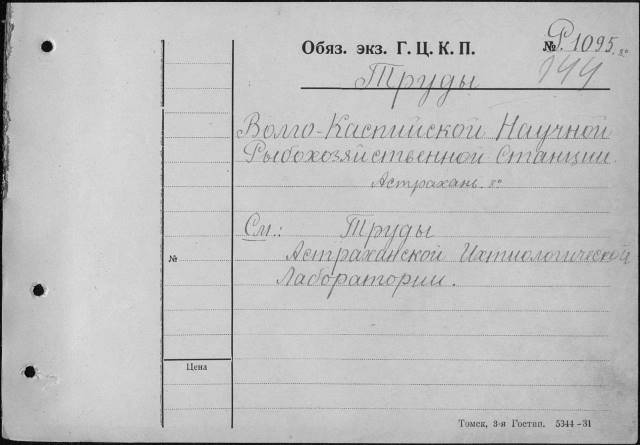 Обяз. экз. Г. Ц. К. П.
№ Р.1095. 8°
144
Труды
Волго-Каспийской Научной
Рыбохозяйственной Станции.
Астрахань. 8°
См.: Труды
Астраханской Ихтиологической
Лаборатории.
№
Цена
Томск, 3-я Гостип. 5344-31